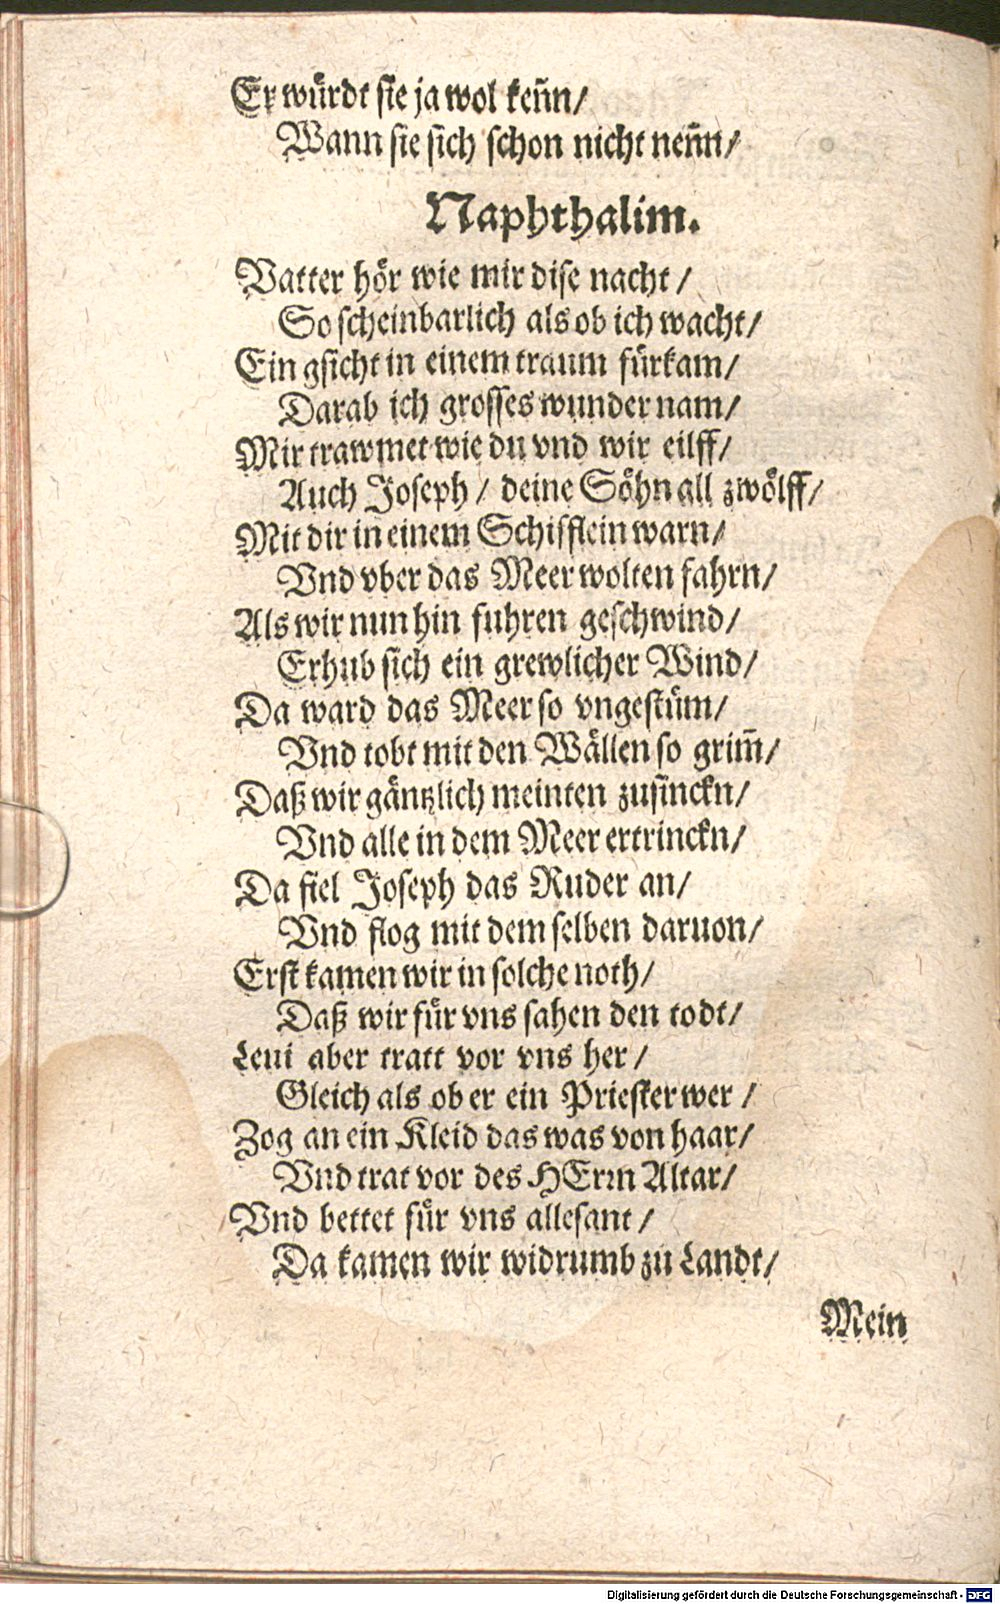 Er würdt sie ja wol keñn/
Wann sie sich schon nicht neñn/
Naphthalim.
Vatter hör wie mir dise nacht/
So scheinbarlich als ob ich wacht/
Ein gsicht in einem traum fürkam/
Darab ich grosses wunder nam/
Mir trawmet wie du vnd wir eilff/
Auch Joseph/ deine Söhn all zwölff/
Mit dir in einem Schifflein warn/
Vnd vber das Meer wolten fahrn/
Als wir nun hin fuhren geschwind/
Erhub sich ein grewlicher Wind/
Da ward das Meer so vngestüm/
Vnd tobt mit den Wällen so grim̃/
Daß wir gäntzlich meinten zusinckn/
Vnd alle in dem Meer ertrinckn/
Da fiel Joseph das Ruder an/
Vnd flog mit dem selben daruon/
Erst kamen wir in solche noth/
Daß wir für vns sahen den todt/
Leui aber tratt vor vns her/
Gleich als ob er ein Priester wer/
Zog an ein Kleid das was von haar/
Vnd trat vor des HErrn Altar/
Vnd bettet für vns allesant/
Da kamen wir widrumb zu Landt/
Mein
Digitalisierung gefördert durch die Deutsche Forschungsgemeinschaft - DFG